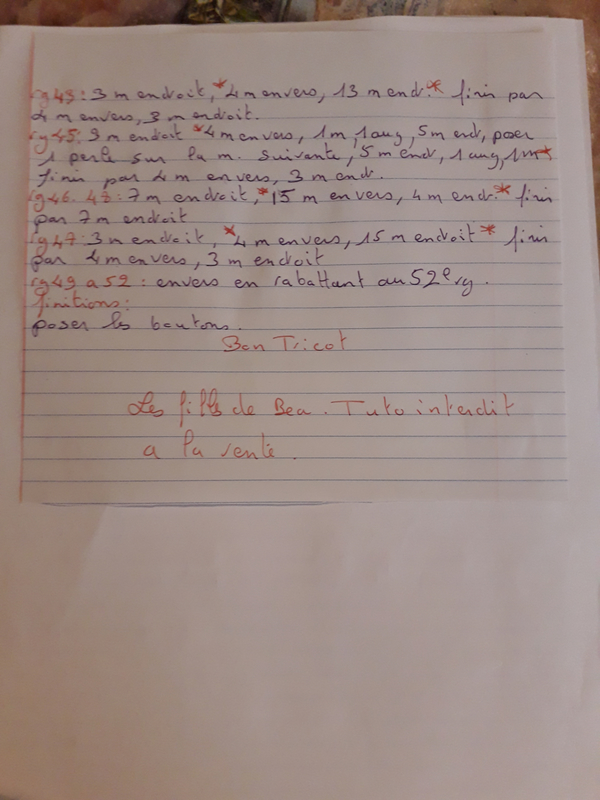 rg43: 3 m endroit, *4 m envers, 13 m endr.* finir par
4 m envers, 3 m endroit.
rg45: 3 m endroit *4 m envers, 1m, 1 aug, 5 m endr, poser
1 perle sur la m. suivante, 5 m endr, 1 aug, 1m*
finir par 4 m envers, 3 m endr.
rg46. 48: 7 m endroit, *15 m envers, 4 m endr.* finir
par 7 m endroit
rg47: 3 m endroit, *4 m envers, 15 m endroit* finir
par 4 m envers, 3 m endroit
rg49 a 52: envers en rabattant au 52e rg.
finitions:
poser les boutons.
Bon Tricot
Les filles de Bea. Tuto interdit
a la vente.